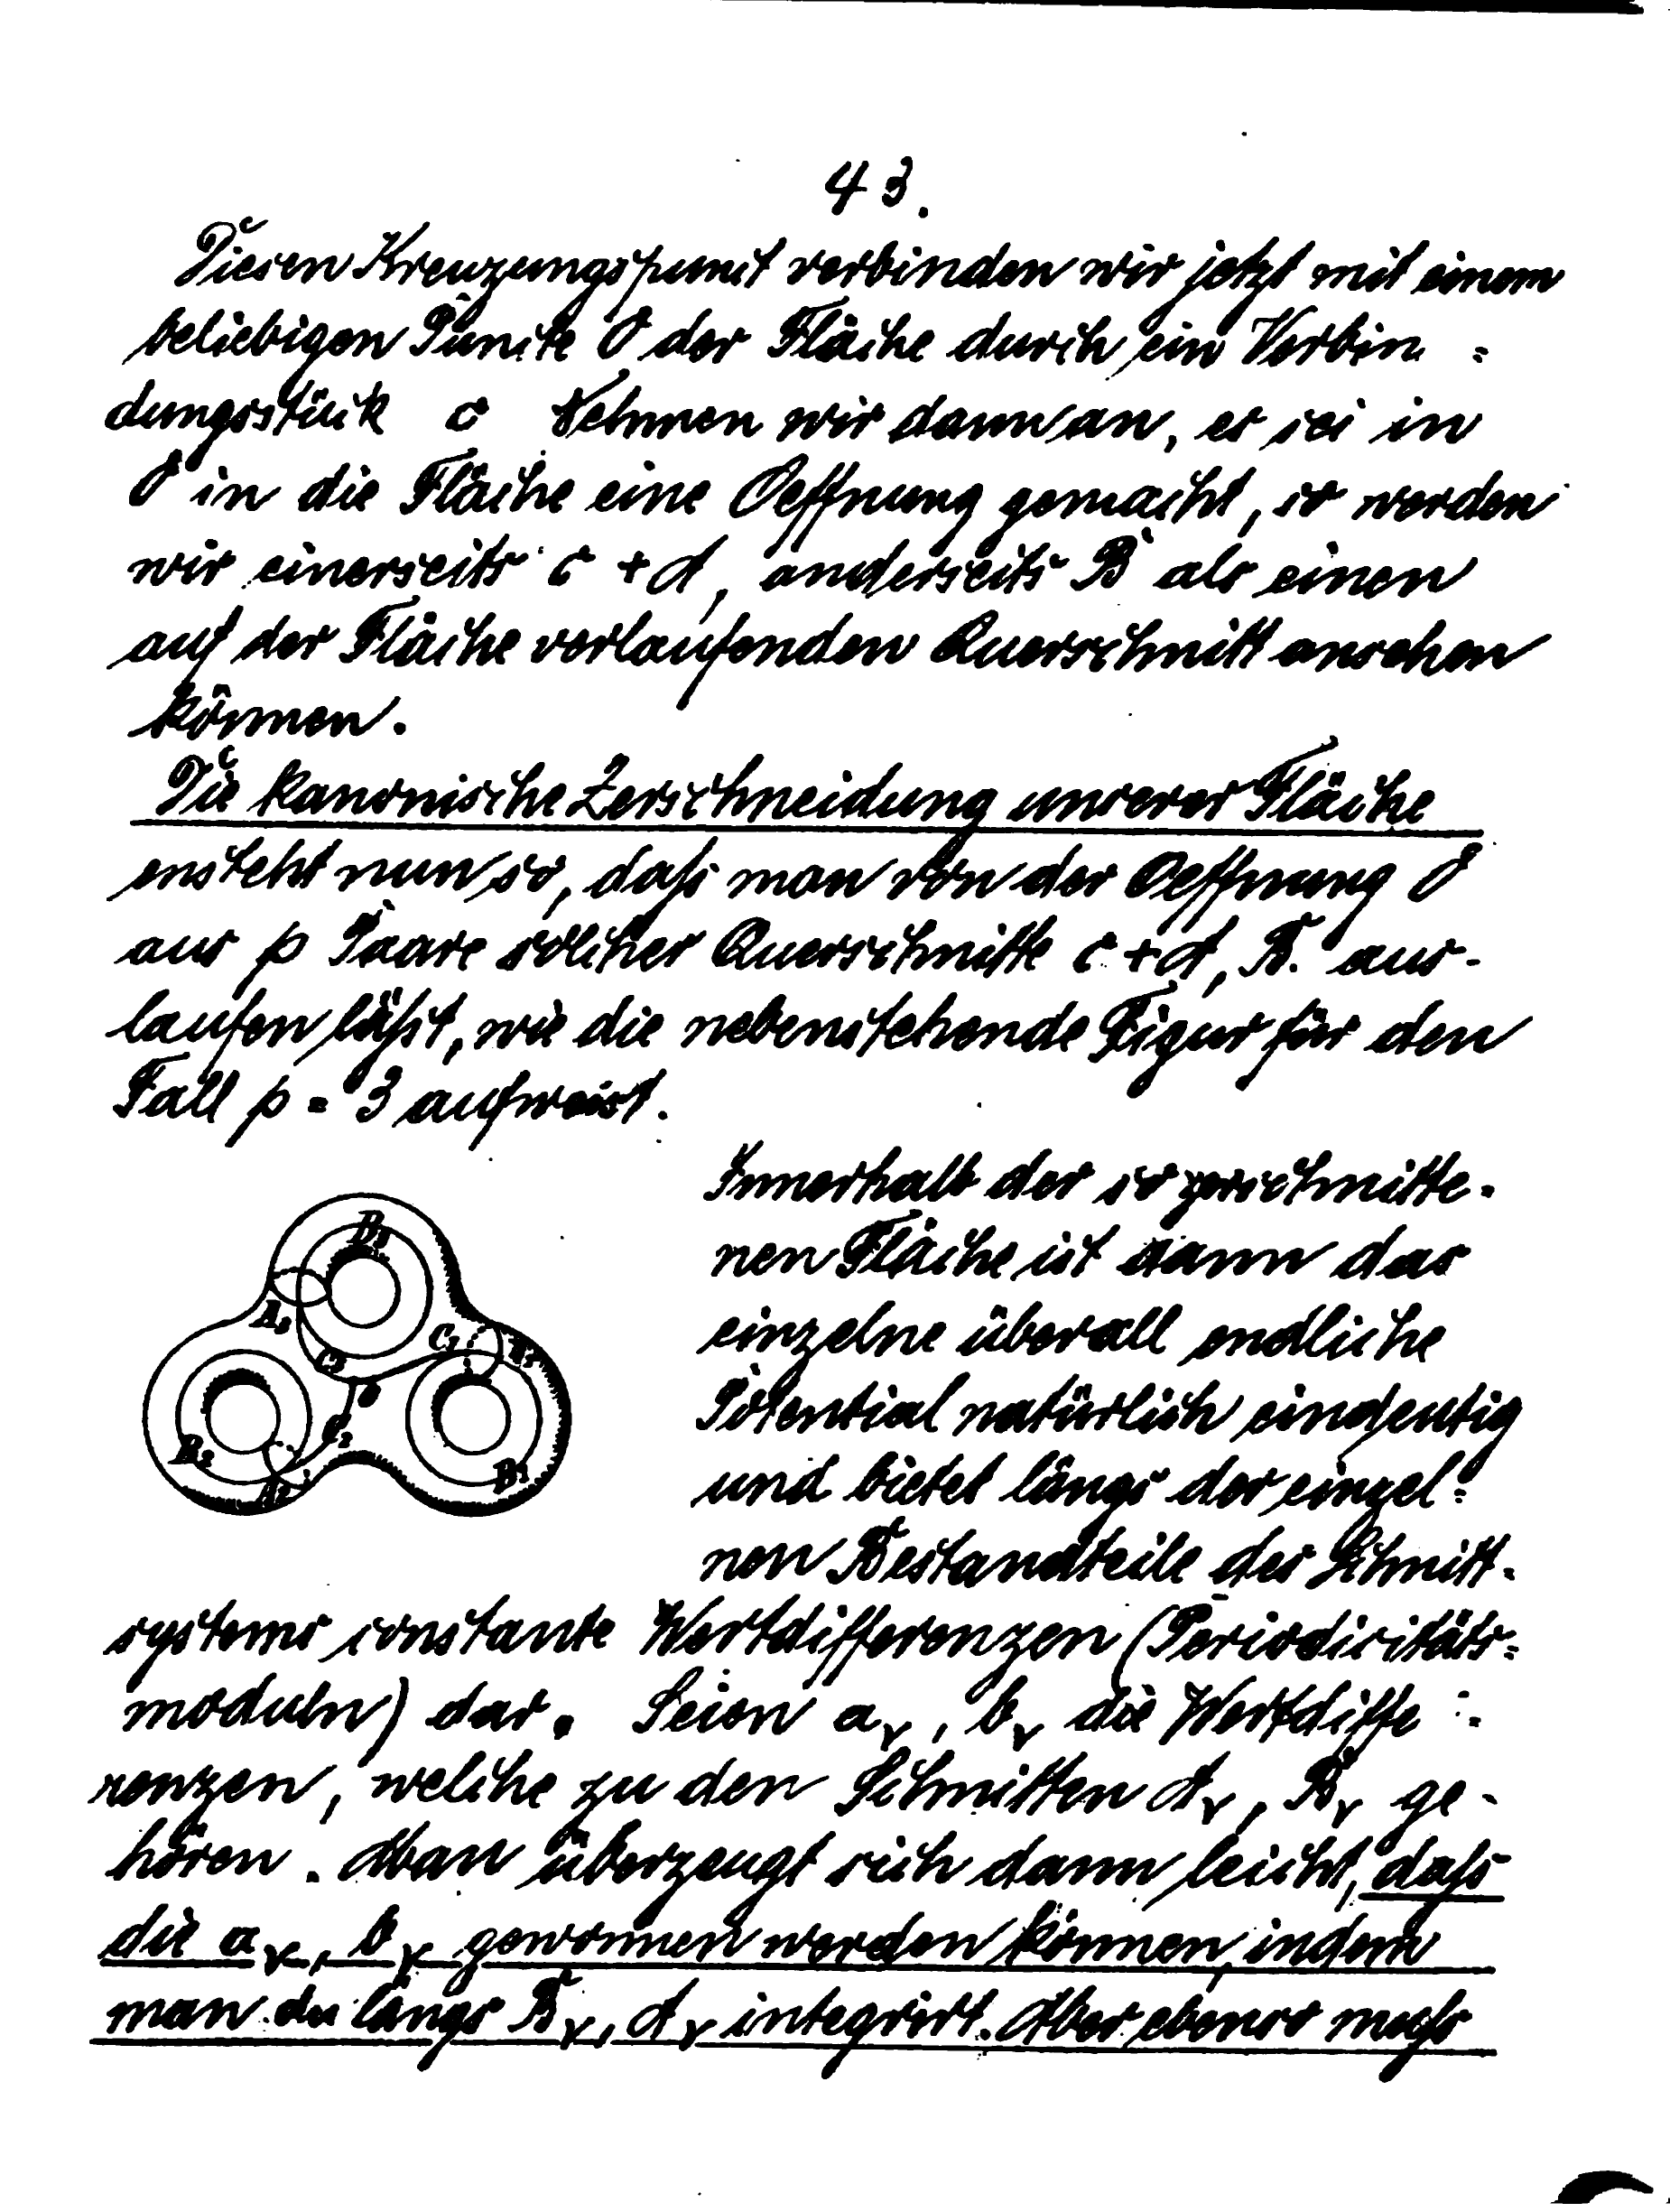 43.
Diesen Kreuzungspunct verbinden wir jetzt mit einem
beliebigen Puncte O der Fläche durch ein Verbin=
dungsstück C Nehmen wir dann an, es sei in
O in die Fläche eine Oeffnung gemacht, so werden
wir einerseits C + A, anderseits B als einen
auf der Fläche verlaufenden Querschnitt ansehen
können.
Die kanonische Zerschneidung unserer Fläche
ensteht nun so, daſs man von der Oeffnung O
aus p Paare solcher Querschnitte C + A, B. aus-
laufen läſst, wie die nebenstehende Figur für den
Fall p = 3 aufweist.
B₃
A₃
C₁
A₁
C₃
O
C₂
B₂
B₁
A₂
Innerhalb der so zerschnitte-
nen Fläche ist dann das
einzelne überall endliche
Potential natürlich eindeutig
und bietet längs der einzel=
nen Bestandteile des Schnitt-
systems constante Wertdifferenzen (Periodicitäts=
moduln) dar. Seien aᵥ, bᵥ die Wertdiffe=
renzen, welche zu den Schnitten Aᵥ, Bᵥ ge-
hören. Man überzeugt sich dann leicht, daſs
die aᵥ, bᵥ gewonnen werden können, indem
man du längs Bᵥ, Aᵥ integrirt. Aber ebenso muſs